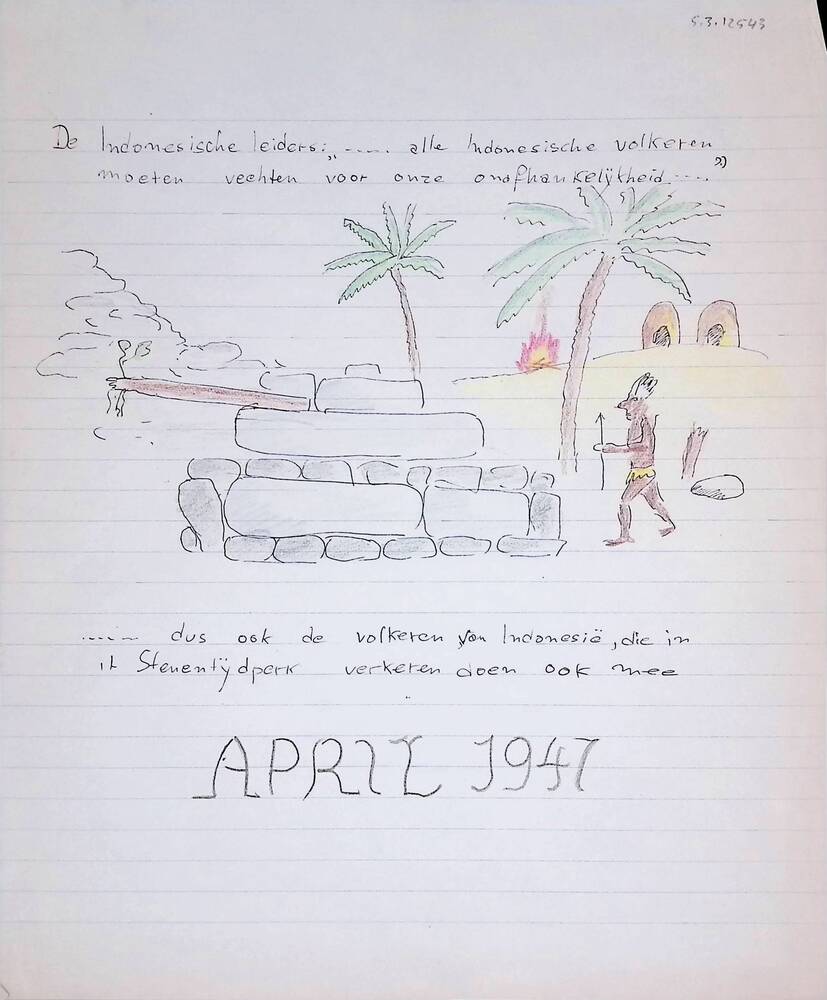 5.3.12543
De Indonesische leiders: „..... alle Indonesische volkeren
moeten vechten voor onze onafhankelijkheid ....”
...... dus ook de volkeren van Indonesië, die in
't Steentijdperk verkeren doen ook mee
APRIL 1947